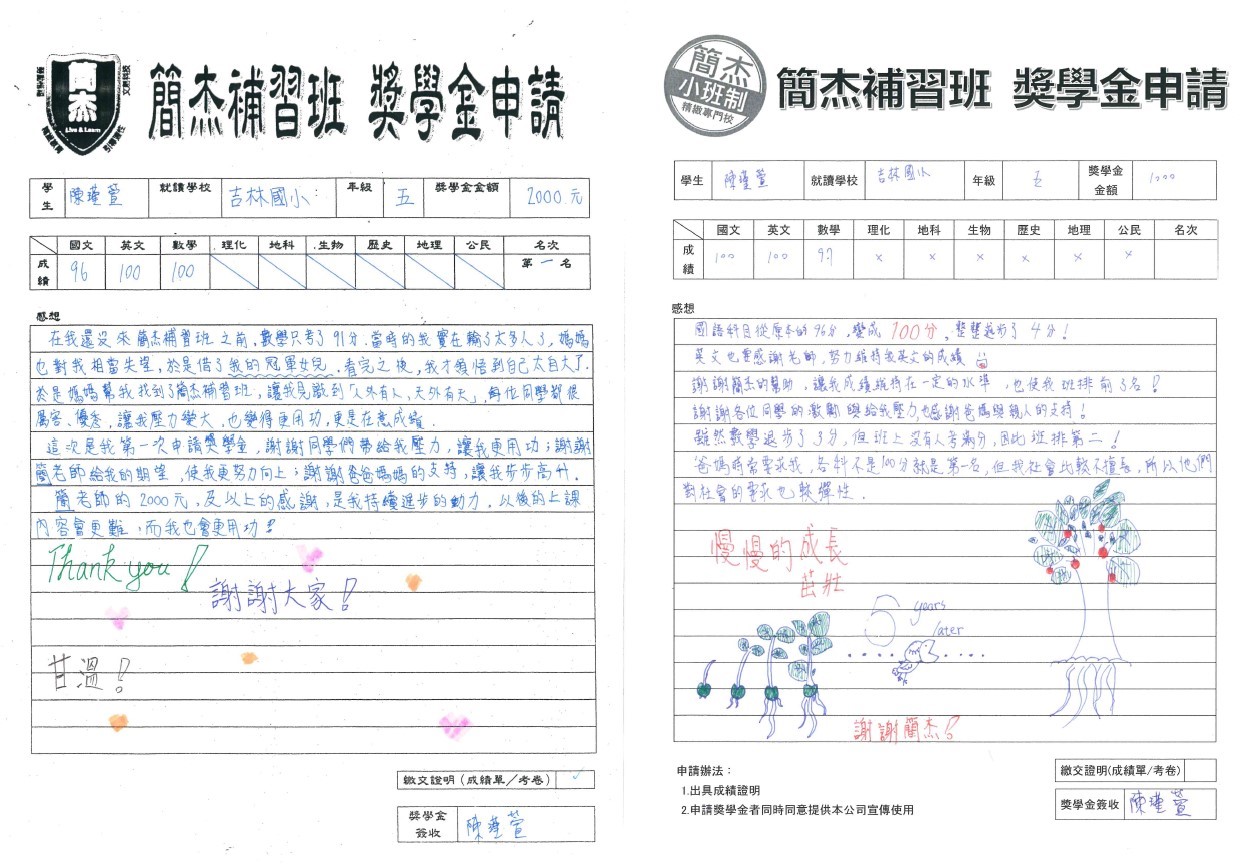 簡杰
Live & Learn
簡杰補習班 獎學金申請
學生 陳瑾萱 就讀學校 吉林國小 年級 五 獎學金金額 2000元
國文 英文 數學 理化 地科 生物 歷史 地理 公民 名次
成績 96 100 100 第一名
感想
在我還沒來簡杰補習班之前,數學只考了91分,當時的我實在輸了太多人了,媽媽
也對我相當失望,於是借了我的冠軍女兒,看完之後,我才領悟到自己太自大了,
於是媽媽幫我找到了簡杰補習班,讓我見識到「人外有人,天外有天」,每位同學都很
厲害、優秀,讓我壓力變大,也變得更用功,更是在意成績.
這次是我第一次申請獎學金,謝謝同學們帶給我壓力,讓我更用功;謝謝
簡老師給我的期望,使我更努力向上;謝謝爸爸媽媽的支持,讓我步步高升.
簡老師的2000元,及以上的感謝,是我持續進步的動力.以後的上課
內容會更難,而我也會更用功!
Thank you!
謝謝大家!
甘溫!
繳交證明(成績單/考卷) ✓
獎學金簽收 陳瑾萱
簡杰
小班制
精緻專門校
簡杰補習班 獎學金申請
學生 陳瑾萱 就讀學校 吉林國小 年級 五 獎學金金額 1000
國文 英文 數學 理化 地科 生物 歷史 地理 公民 名次
成績 100 100 97 x x x x x x
感想
國語科目從原本的96分,變成100分,整整進步了4分!
英文也要感謝老師,努力維持我英文的成績
謝謝簡杰的幫助,讓我成績維持在一定的水準,也使我班排前3名!
謝謝各位同學的激勵與給我壓力,也感謝爸媽與親人的支持!
雖然數學退步了3分,但班上沒有人考滿分,因此班排第二!
爸媽時常要求我,各科不是100分就是第一名,但我社會比較不擅長,所以他們
對社會的要求也較彈性.
慢慢的成長
茁壯
5 years
later
謝謝簡杰!
申請辦法:
1.出具成績證明
2.申請獎學金者同時同意提供本公司宣傳使用
繳交證明(成績單/考卷)
獎學金簽收 陳瑾萱